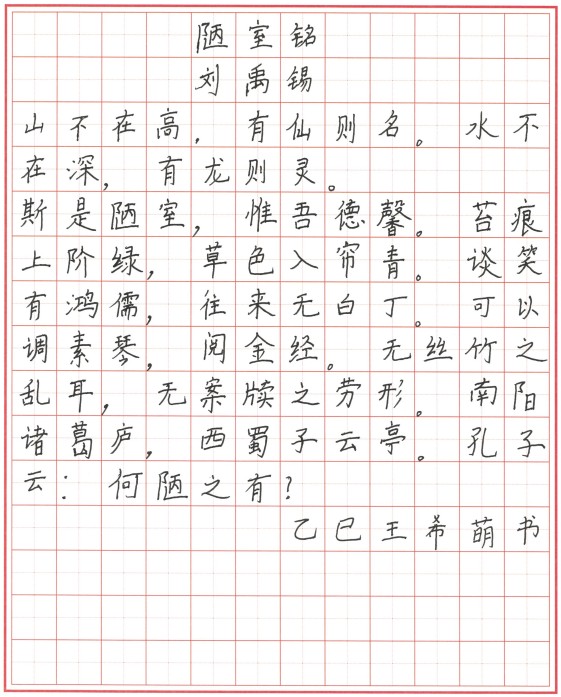 陋室铭
刘禹锡
山不在高,有仙则名。水不
在深,有龙则灵。
斯是陋室,惟吾德馨。苔痕
上阶绿,草色入帘青。谈笑
有鸿儒,往来无白丁。可以
调素琴,阅金经。无丝竹之
乱耳,无案牍之劳形。南阳
诸葛庐,西蜀子云亭。孔子
云:何陋之有?
乙巳王希萌书